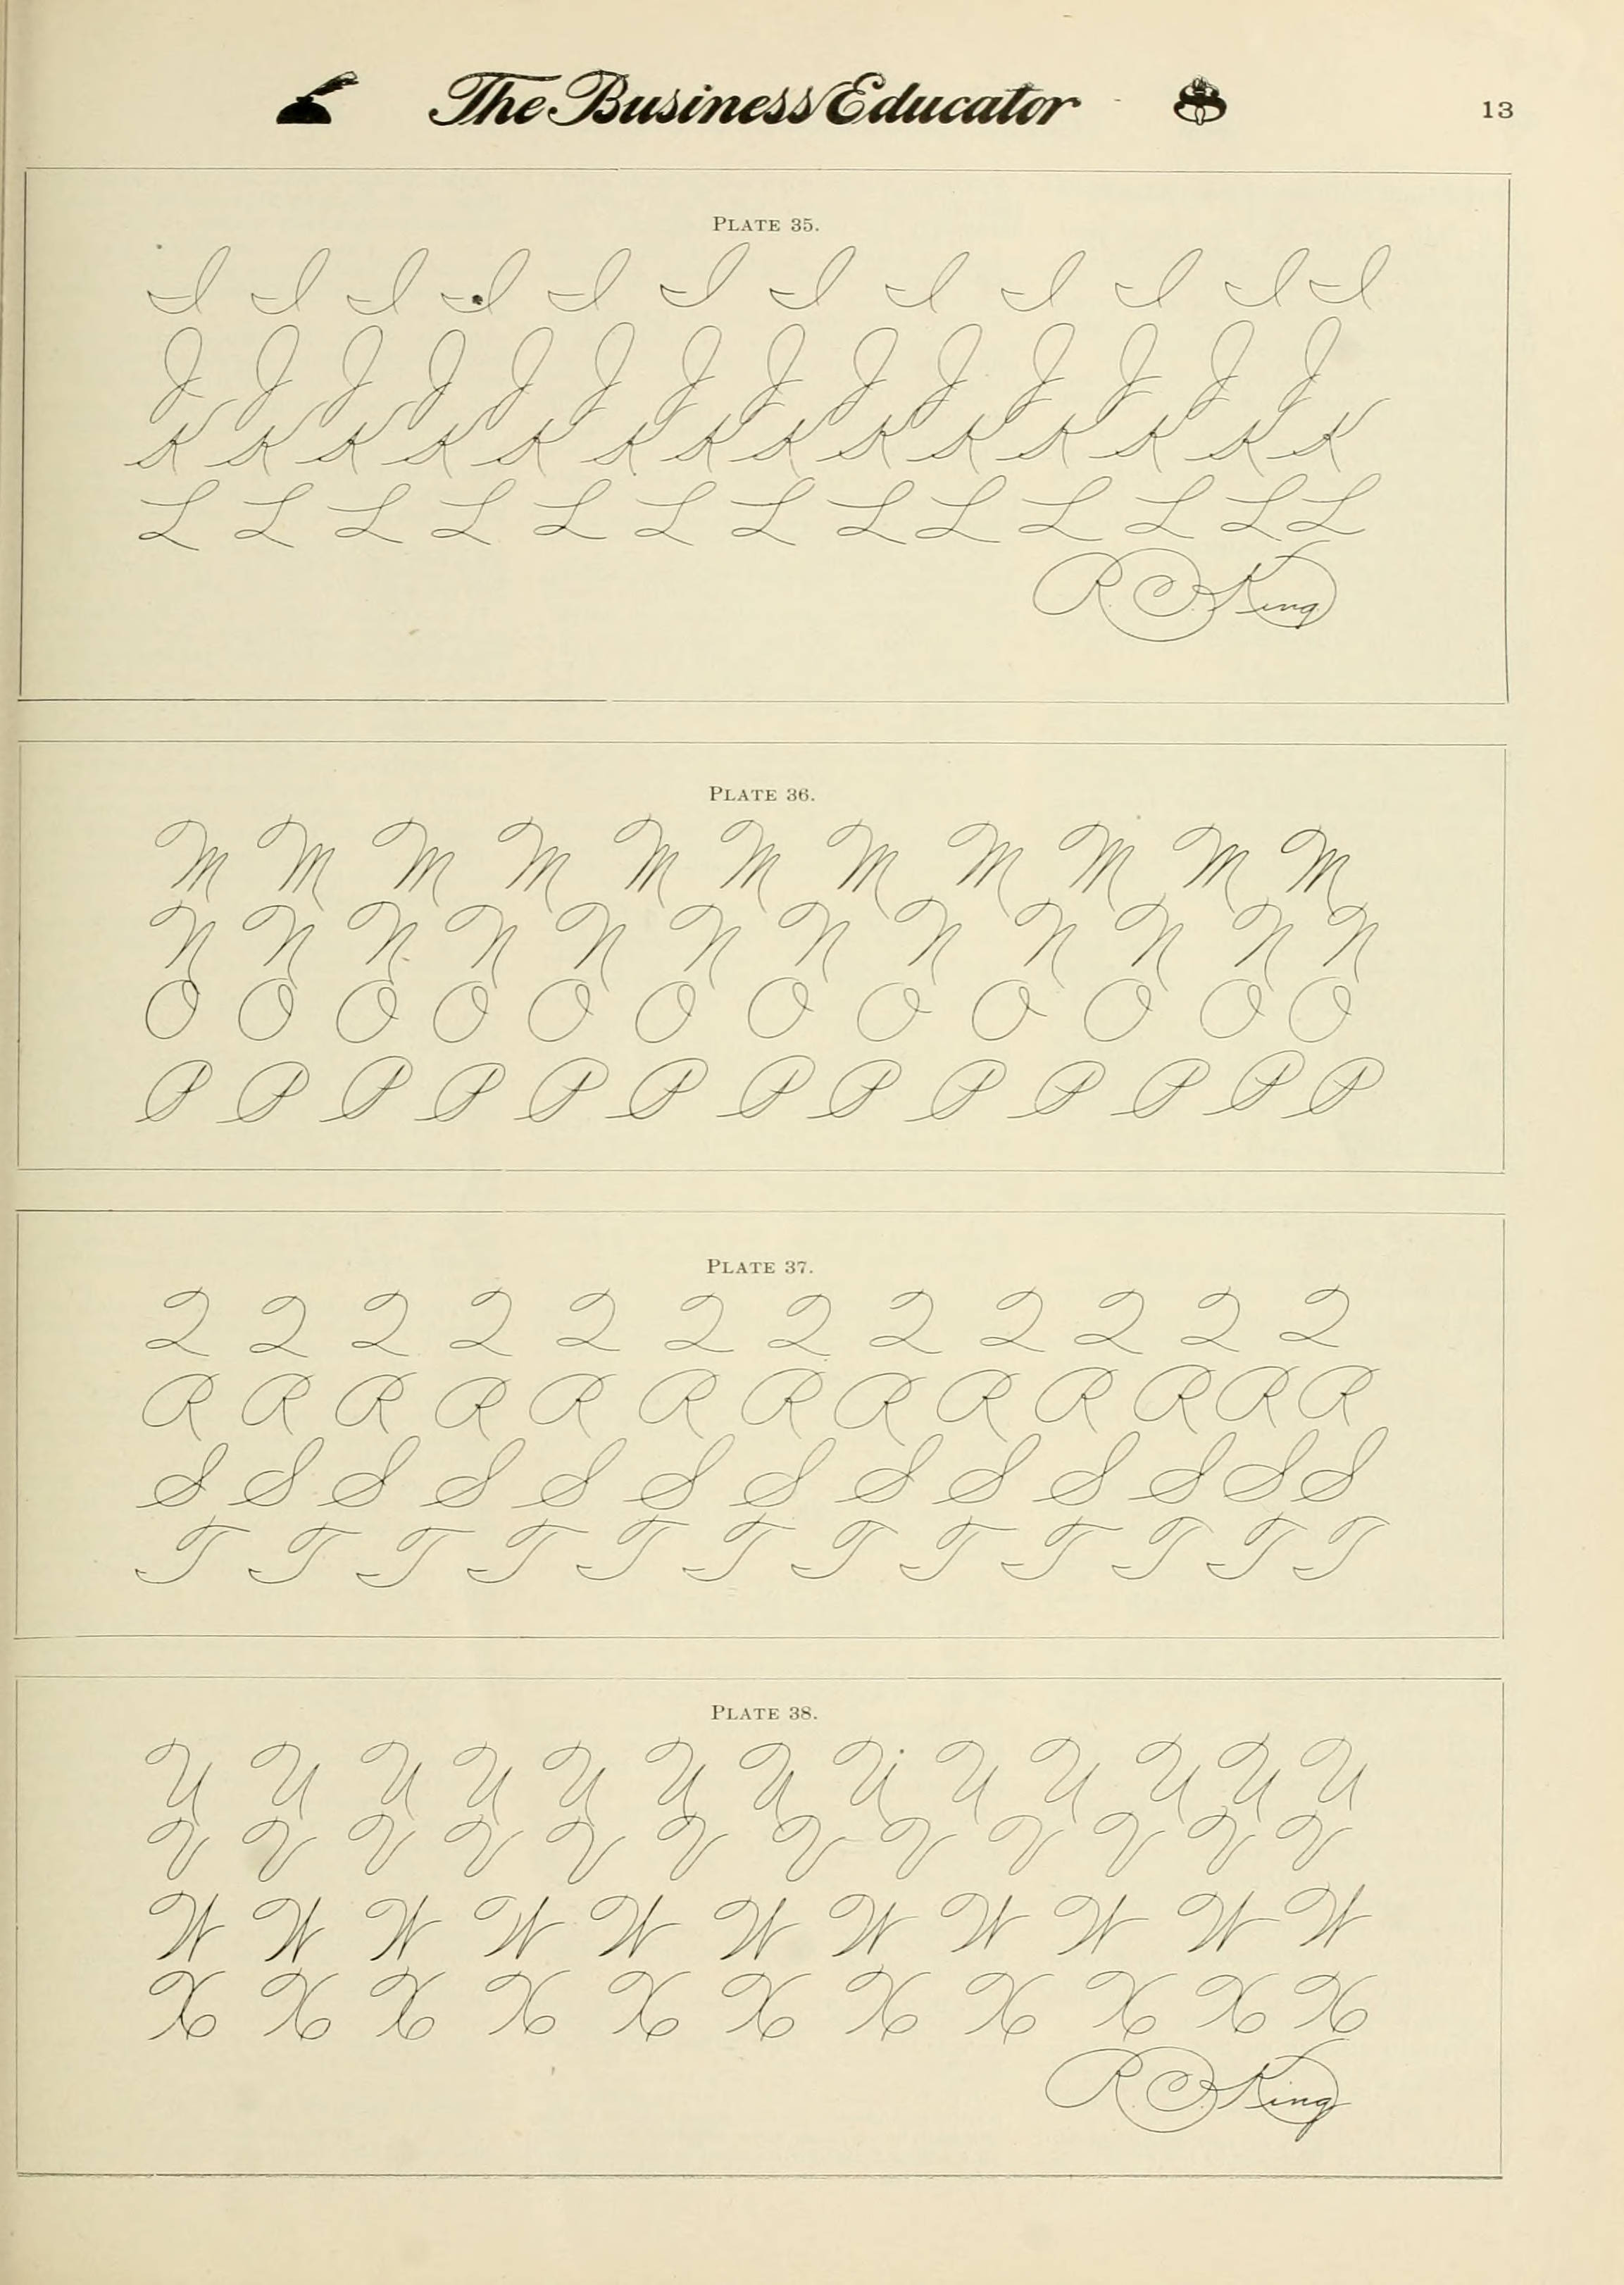 The Business Educator 13
PLATE 35.
I I I I I I I I I I I I
J J J J J J J J J J J J J J
K K K K K K K K K K K K K K
L L L L L L L L L L L L L
R C King
PLATE 36.
M M M M M M M M M M M
N N N N N N N N N N N N
O O O O O O O O O O O O
P P P P P P P P P P P P P
PLATE 37.
Q Q Q Q Q Q Q Q Q Q Q Q
R R R R R R R R R R R R R
S S S S S S S S S S S S S
T T T T T T T T T T T T
PLATE 38.
U U U U U U U U U U U U U
V V V V V V V V V V V V
W W W W W W W W W W W
X X X X X X X X X X X
R C King